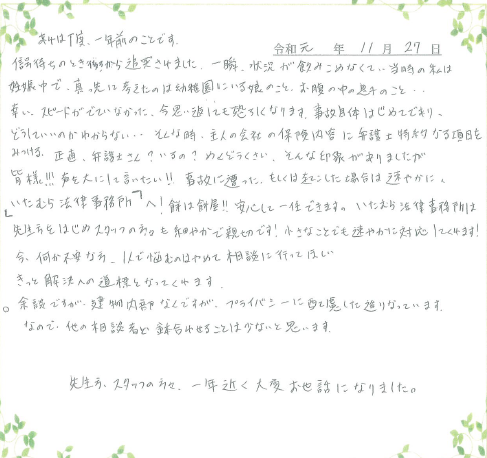 あれは丁度、一年前のことです。
令和元年11月27日
信号待ちのとき後ろから追突されました。一瞬、状況が飲みこめなくて、当時の私は
妊娠中で、真っ先に考えたのは幼稚園にいる娘のこと、お腹の中の息子のこと…
幸い、スピードがでていなかった、今思い返しても恐ろしくなります。事故自体はじめてであり、
どうしていいのかわからない… そんな時、主人の会社の保険内容に弁護士特約なる項目を
みつける。正直、弁護士さん?いるの?めんどうくさい、そんな印象がありましたが
皆様!!!声を大にして言いたい!!事故に遭った、もしくは起こした場合は速やかに、
「いたむら法律事務所」へ!餅は餅屋!!安心して一任できます。いたむら法律事務所は
先生方をはじめスタッフの方も和やかで親切です!小さなことでも速やかに対応してくれます!
今、何か不安な方、1人で悩むのはやめて相談に行ってほしい
きっと解決への道標となってくれます
○余談ですが、建物内部なんですが、プライバシーに配慮した造りなっています。
なので、他の相談者と鉢合わせることは少ないと思います。
先生方、スタッフの方々、一年近く大変お世話になりました。